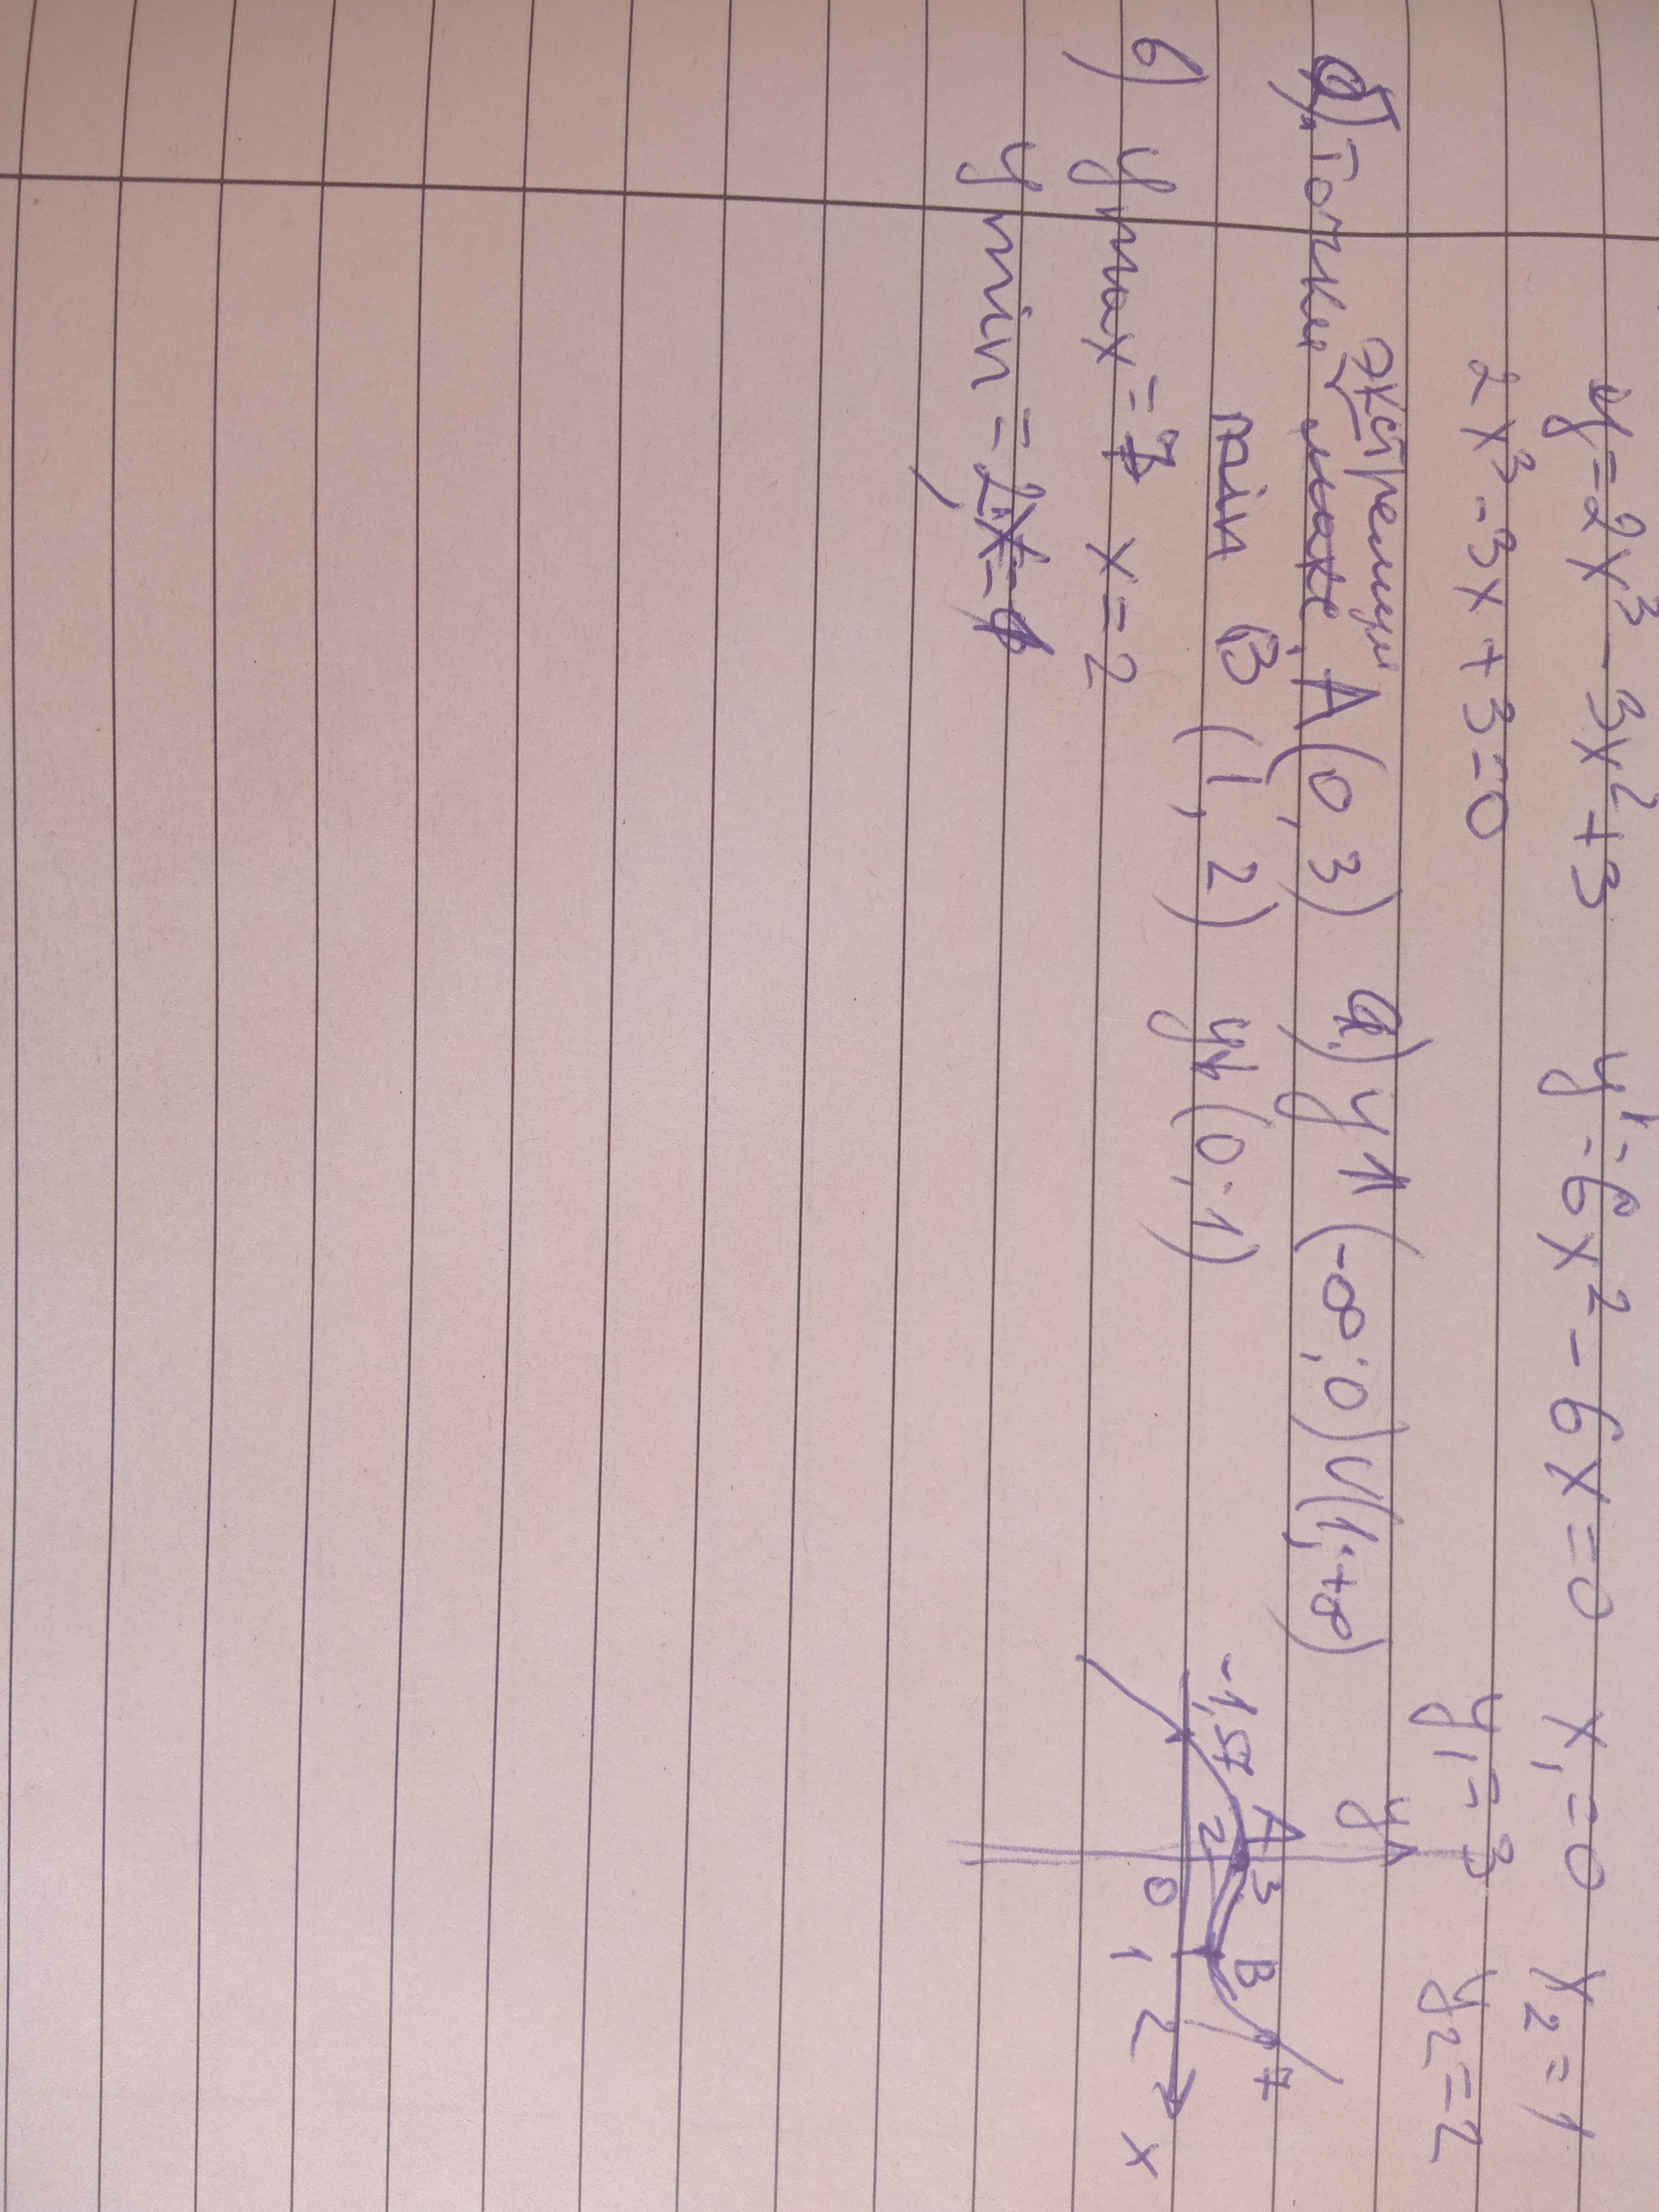 y=2x³-3x²+3 y'=6x²-6x=0 x₁=0 x₂=1
2x³-3x+3=0 y₁=3 y₂=2
экстремум
б) Точки макс. A(0,3) а) y↑(-∞;0)∪(1;+∞)
min B(1,2) y↓(0;1)
в) y max=7 x=2
y min=2
y
-1,57 A 3 B 7
2
0 1 2 x